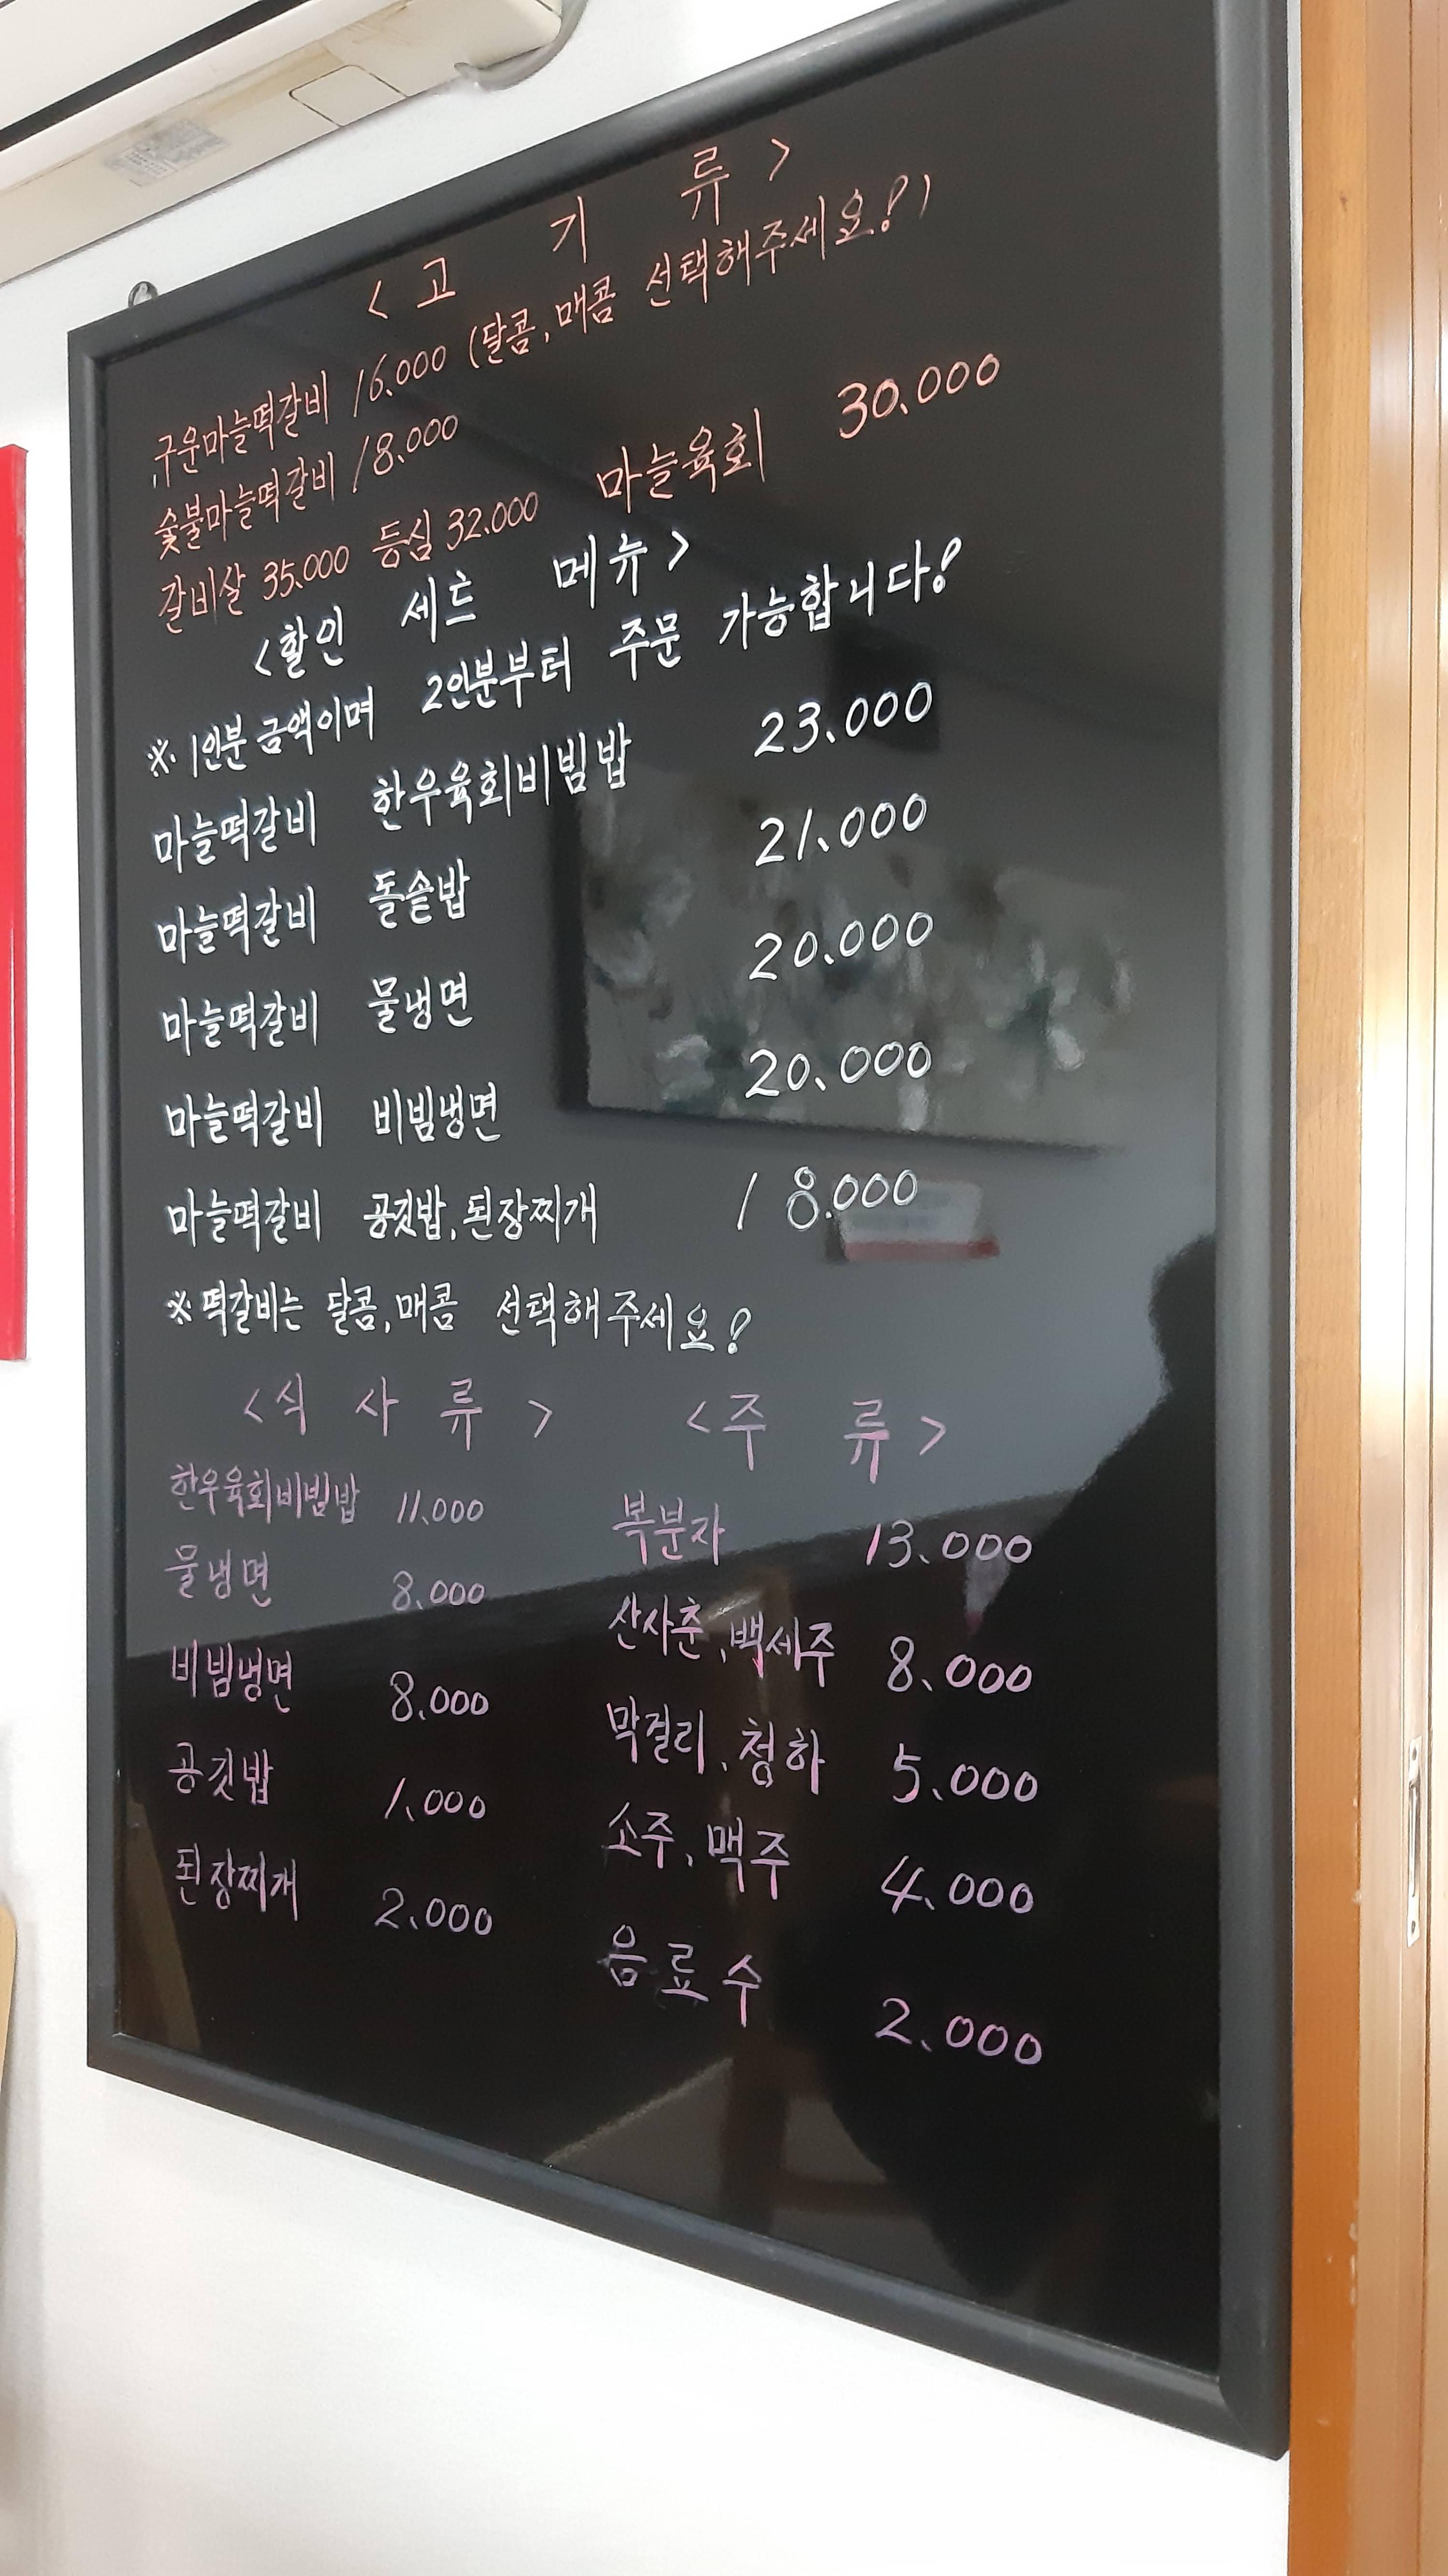 <고 기 류>
구운마늘떡갈비 16.000 (달콤,매콤 선택해주세요!)
숯불마늘떡갈비 18.000
갈비살 35.000 등심 32.000 마늘육회 30.000
<할인 세트 메뉴>
※ 1인분 금액이며 2인분부터 주문 가능합니다!
마늘떡갈비 한우육회비빔밥 23.000
마늘떡갈비 돌솥밥 21.000
마늘떡갈비 물냉면 20.000
마늘떡갈비 비빔냉면 20.000
마늘떡갈비 공깃밥,된장찌개 18.000
※ 떡갈비는 달콤,매콤 선택해주세요!
<식 사 류>
한우육회비빔밥 11.000
물냉면 8.000
비빔냉면 8.000
공깃밥 1.000
된장찌개 2.000
<주 류>
복분자 13.000
산사춘,백세주 8.000
막걸리,청하 5.000
소주,맥주 4.000
음료수 2.000